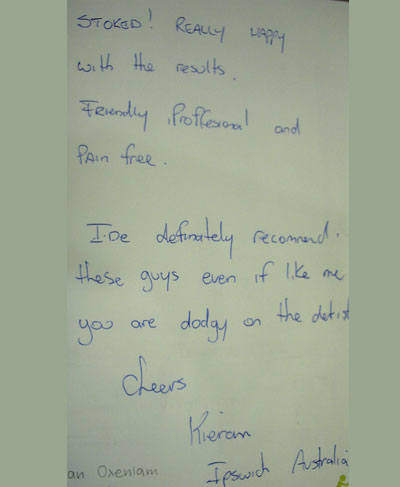 STOKED! REALLY HAPPY
with the results.
FRIENDLY, Proffesional and
PAIN free.
I'De definately recommend.
these guys even if like me
you are dodgy on the detist
Cheers
Kieran
Ipswich Australia
an Oxenlam